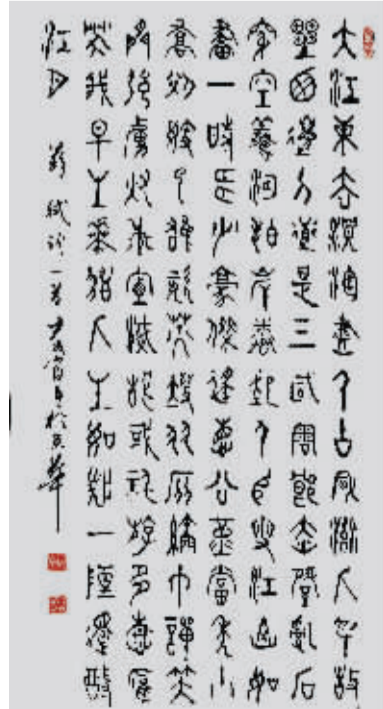 大江東去浪淘盡千古風流人物故
壘西邊人道是三國周郎赤壁亂石
穿空驚濤拍岸捲起千堆雪江山如
畫一時多少豪傑遙想公瑾當年小
喬初嫁了雄姿英發羽扇綸巾談笑
間強虜灰飛煙滅故國神遊多情應
笑我早生華髮人生如夢一尊還酹
江月 蘇軾詞一首 於京華